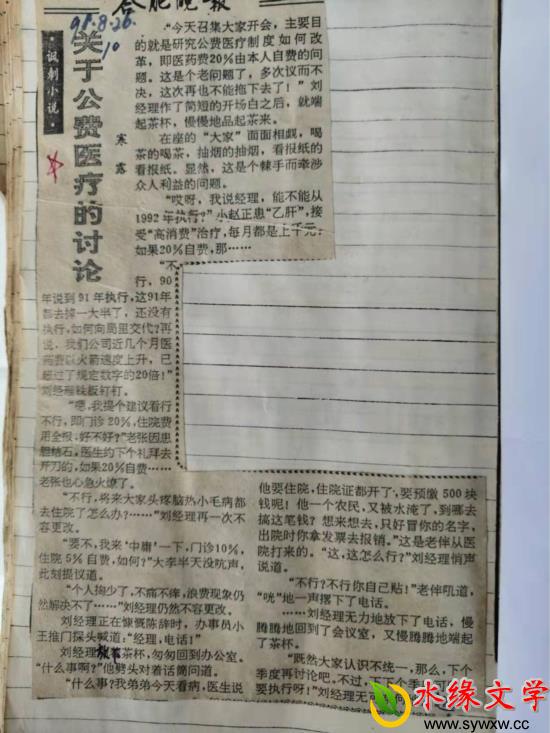 合肥晚报
91.8.26.
10
讽刺小说
关于公费医疗的讨论
寒露
“今天召集大家开会，主要目
的就是研究公费医疗制度如何改
革，即医药费20％由本人自费的问
题。这是个老问题了，多次议而不
决，这次再也不能拖下去了！”刘
经理作了简短的开场白之后，就端
起茶杯，慢慢地品起茶来。
在座的“大家”面面相觑，喝
茶的喝茶，抽烟的抽烟，看报纸的
看报纸。显然，这是个棘手而牵涉
众人利益的问题。
“哎呀，我说经理，能不能从
1992年执行？”小赵正患“乙肝”，接
受“高消费”治疗，每月都是上千元，
如果20％自费，那……
“不
行，90
年说到91年执行，这91年
都去掉一大半了，还没有
执行，如何向局里交代？再
说，我们公司近几个月医
药费以火箭速度上升，已
超过了规定数字的20倍！”
刘经理铁板钉钉。
“嗯，我提个建议看行
不行，即门诊20％，住院费
用全报，好不好？”老张因患
胆结石，医生约下个礼拜去
开刀的，如果20％自费……
老张也心急火燎了。
“不行，将来大家头疼脑热小毛病都
去住院了怎么办？……”刘经理再一次不
容更改。
“要不，我来‘中庸’一下，门诊10％，
住院5％自费，如何？”大李半天没吭声，
此刻提议道。
“个人掏少了，不痛不痒，浪费现象仍
然解决不了……”刘经理仍然不容更改。
刘经理正在慷慨陈辞时，办事员小
王推门探头喊道：“经理，电话！”
刘经理放下茶杯，匆匆回到办公室。
“什么事啊？”他劈头对着话筒问道。
“什么事？我弟弟今天看病，医生说
他要住院，住院证都开了，要预缴500块
钱呢！他一个农民，又被水淹了，到哪去
搞这笔钱？想来想去，只好冒你的名字，
出院时你拿发票去报销。”这是老伴从医
院打来的。“这，这怎么行？”刘经理悄声
说道。
“不行？不行你自己贴！”老伴吼道，
“咣”地一声撂下了电话。
……刘经理无力地放下了电话，慢
腾腾地回到了会议室，又慢腾腾地端起
了茶杯。
“既然大家认识不统一，那么，下个
季度再讨论吧。不过，下下个季
要执行呀！”刘经理无
水缘文学
www.sywxw.cc